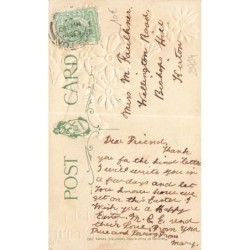 POST CARD
Miss M Faulkner
Wellington Road
Bishops Hill
Dear Friend,
Thank
you for the kind letter
I will write you in
a few days and let
you know how we
get on this Easter I
Wish you a Happy
Easter. M. & E send
their Love. From your
True and Loving Friend
Mary